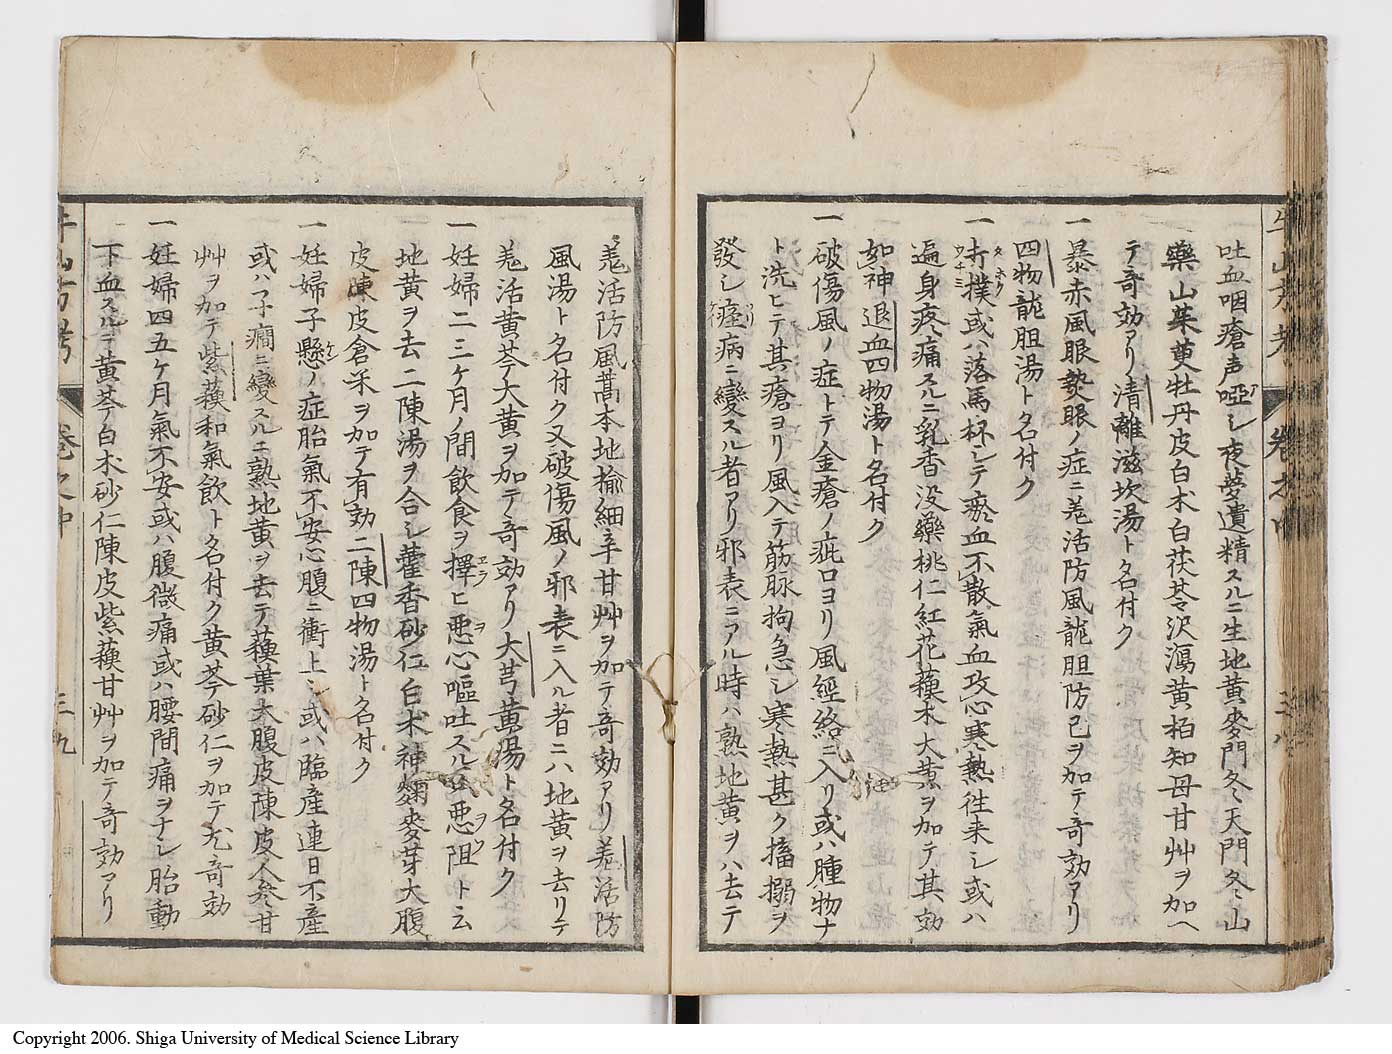 吐血咽瘡声啞シ夜夢遺精スルニ生地黄麥門冬天門冬山
藥山茱萸牡丹皮白朮白茯苓沢瀉黄栢知母甘艸ヲ加ヘ
テ奇効アリ清離滋坎湯ト名付ク
一暴赤風眼𤍠眼ノ症ニ羗活防風龍胆防已ヲ加テ奇効アリ
四物龍胆湯ト名付ク
一打撲或ハ落馬杯シテ瘀血不散氣血攻心寒熱往来シ或ハ
遍身疼痛スルニ乳香没藥桃仁紅花蘓木大黄ヲ加テ其効
如神退血四物湯ト名付ク
一破傷風ノ症トテ金瘡ノ疵口ヨリ風經絡ニ入リ或ハ腫物ナ
ト洗ヒテ其瘡ヨリ風入テ筋脉拘急シ寒熱甚ク搐搦ヲ
發シ痙病ニ變スル者アリ邪表ニアル時ハ熟地黄ヲハ去テ
羗活防風藁本地榆細辛甘艸ヲ加テ奇効アリ羗活防
風湯ト名付ク又破傷風ノ邪表ニ入ル者ニハ地黄ヲ去リテ
羗活黄芩大黄ヲ加テ奇効アリ大芎黄湯ト名付ク
一妊婦二三ケ月ノ間飲食ヲ擇ヒ悪心嘔吐スル 悪阻ト云
地黄ヲ去二陳湯ヲ合シ藿香砂仁白朮神麹麥芽大腹
皮陳皮倉米ヲ加テ有効二陳四物湯ト名付ク
一妊婦子懸ノ症胎氣不安心腹ニ衝上シ或ハ臨産連日不産
或ハ子癇ニ變スルニ熟地黄ヲ去テ蘓葉大腹皮陳皮人參甘
艸ヲ加テ紫蘓和氣飲ト名付ク黄芩砂仁ヲ加テ尤奇効
一妊婦四五ケ月氣不安或ハ腹微痛或ハ腰間痛ヲナシ胎動
下血スルニ黄芩白朮砂仁陳皮紫蘓甘艸ヲ加テ奇効アリ
卷之中
三九
Copyright 2006. Shiga University of Medical Science Library